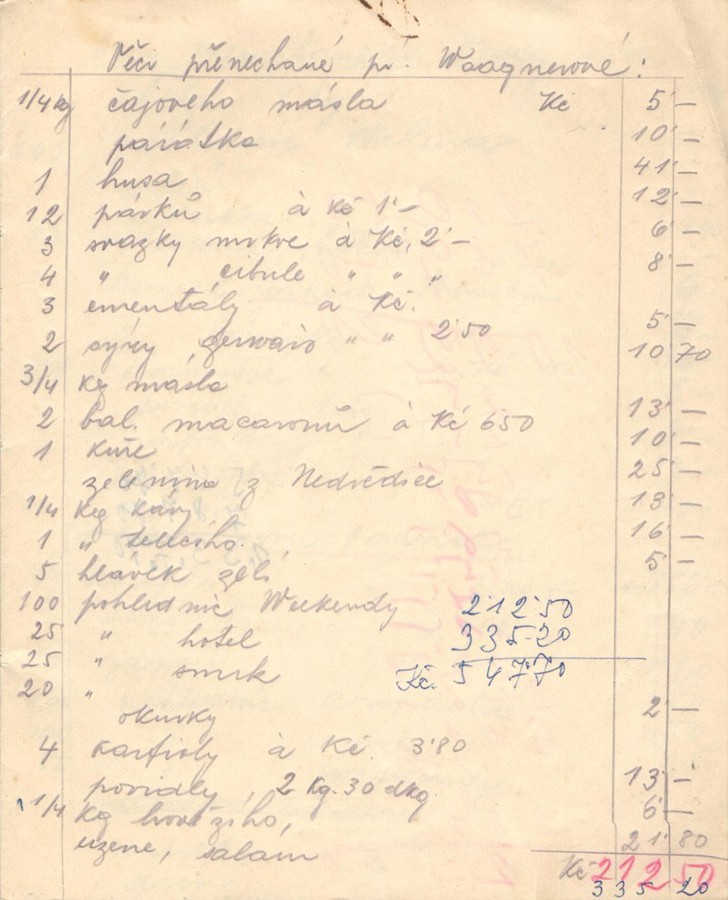 Věci přenechané pí. Waagnerové:
1/4 kg čajového másla Kč 5'—
párátka 10'—
1 husa 41'—
12 párků à Kč 1'— 12'—
3 svazky mrkve à Kč, 2'— 6'—
4 " cibule " " " 8'—
3 ementály à Kč.
2 sýry gervais " " 2'50 5'—
3/4 kg másla 10'70
2 bal. macaronů à Kč 6'50 13'—
1 kuře 10'—
zelenina z Nedvědice 25'—
1/4 kg kávy 13'—
1 " telecího 16'—
5 hlávek zélí 5'—
100 pohlednic Weekendy 212'50
25 " hotel 335·20
25 " smrk Kč. 547'70
20 "
okurky 2'—
4 karfioly à Kč 3'80
povidly, 2 kg. 30 dkg. 13'—
1/4 kg hovězího, 6'—
uzené, salám 21'80
Kč 212 50
335 20